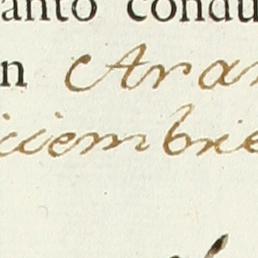 anto condu
n Aran
iciembre